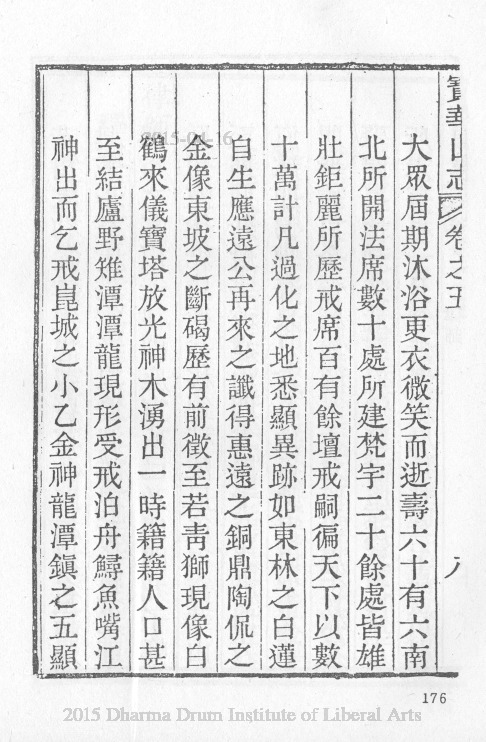 寶華山志 卷之五 八
大眾屆期沐浴更衣微笑而逝壽六十有六南
北所開法席數十處所建梵宇二十餘處皆雄
壯鉅麗所歷戒席百有餘壇戒嗣徧天下以數
十萬計凡過化之地悉顯異跡如東林之白蓮
自生應遠公再來之讖得惠遠之銅鼎陶侃之
金像東坡之斷碣歷有前徵至若青獅現像白
鶴來儀寶塔放光神木湧出一時籍籍人口甚
至結廬野雉潭潭龍現形受戒泊舟鱘魚嘴江
神出而乞戒崑城之小乙金神龍潭鎮之五顯
176
2015 Dharma Drum Institute of Liberal Arts